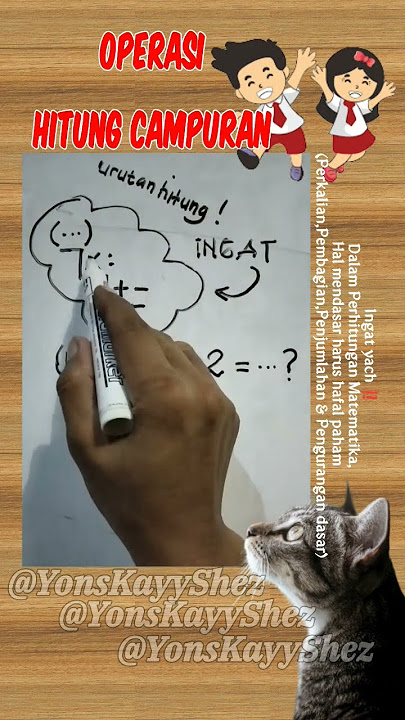 OPERASI
HITUNG CAMPURAN
urutan hitung !
(...)
iNGAT
:
+ -
2 = ... ?
Ingat yach !!
Dalam Perhitungan Matematika,
Hal mendasar harus hafal paham
(Perkalian,Pembagian,Penjumlahan & Pengurangan dasar)
@YonsKayyShez
@YonsKayyShez
@YonsKayyShez